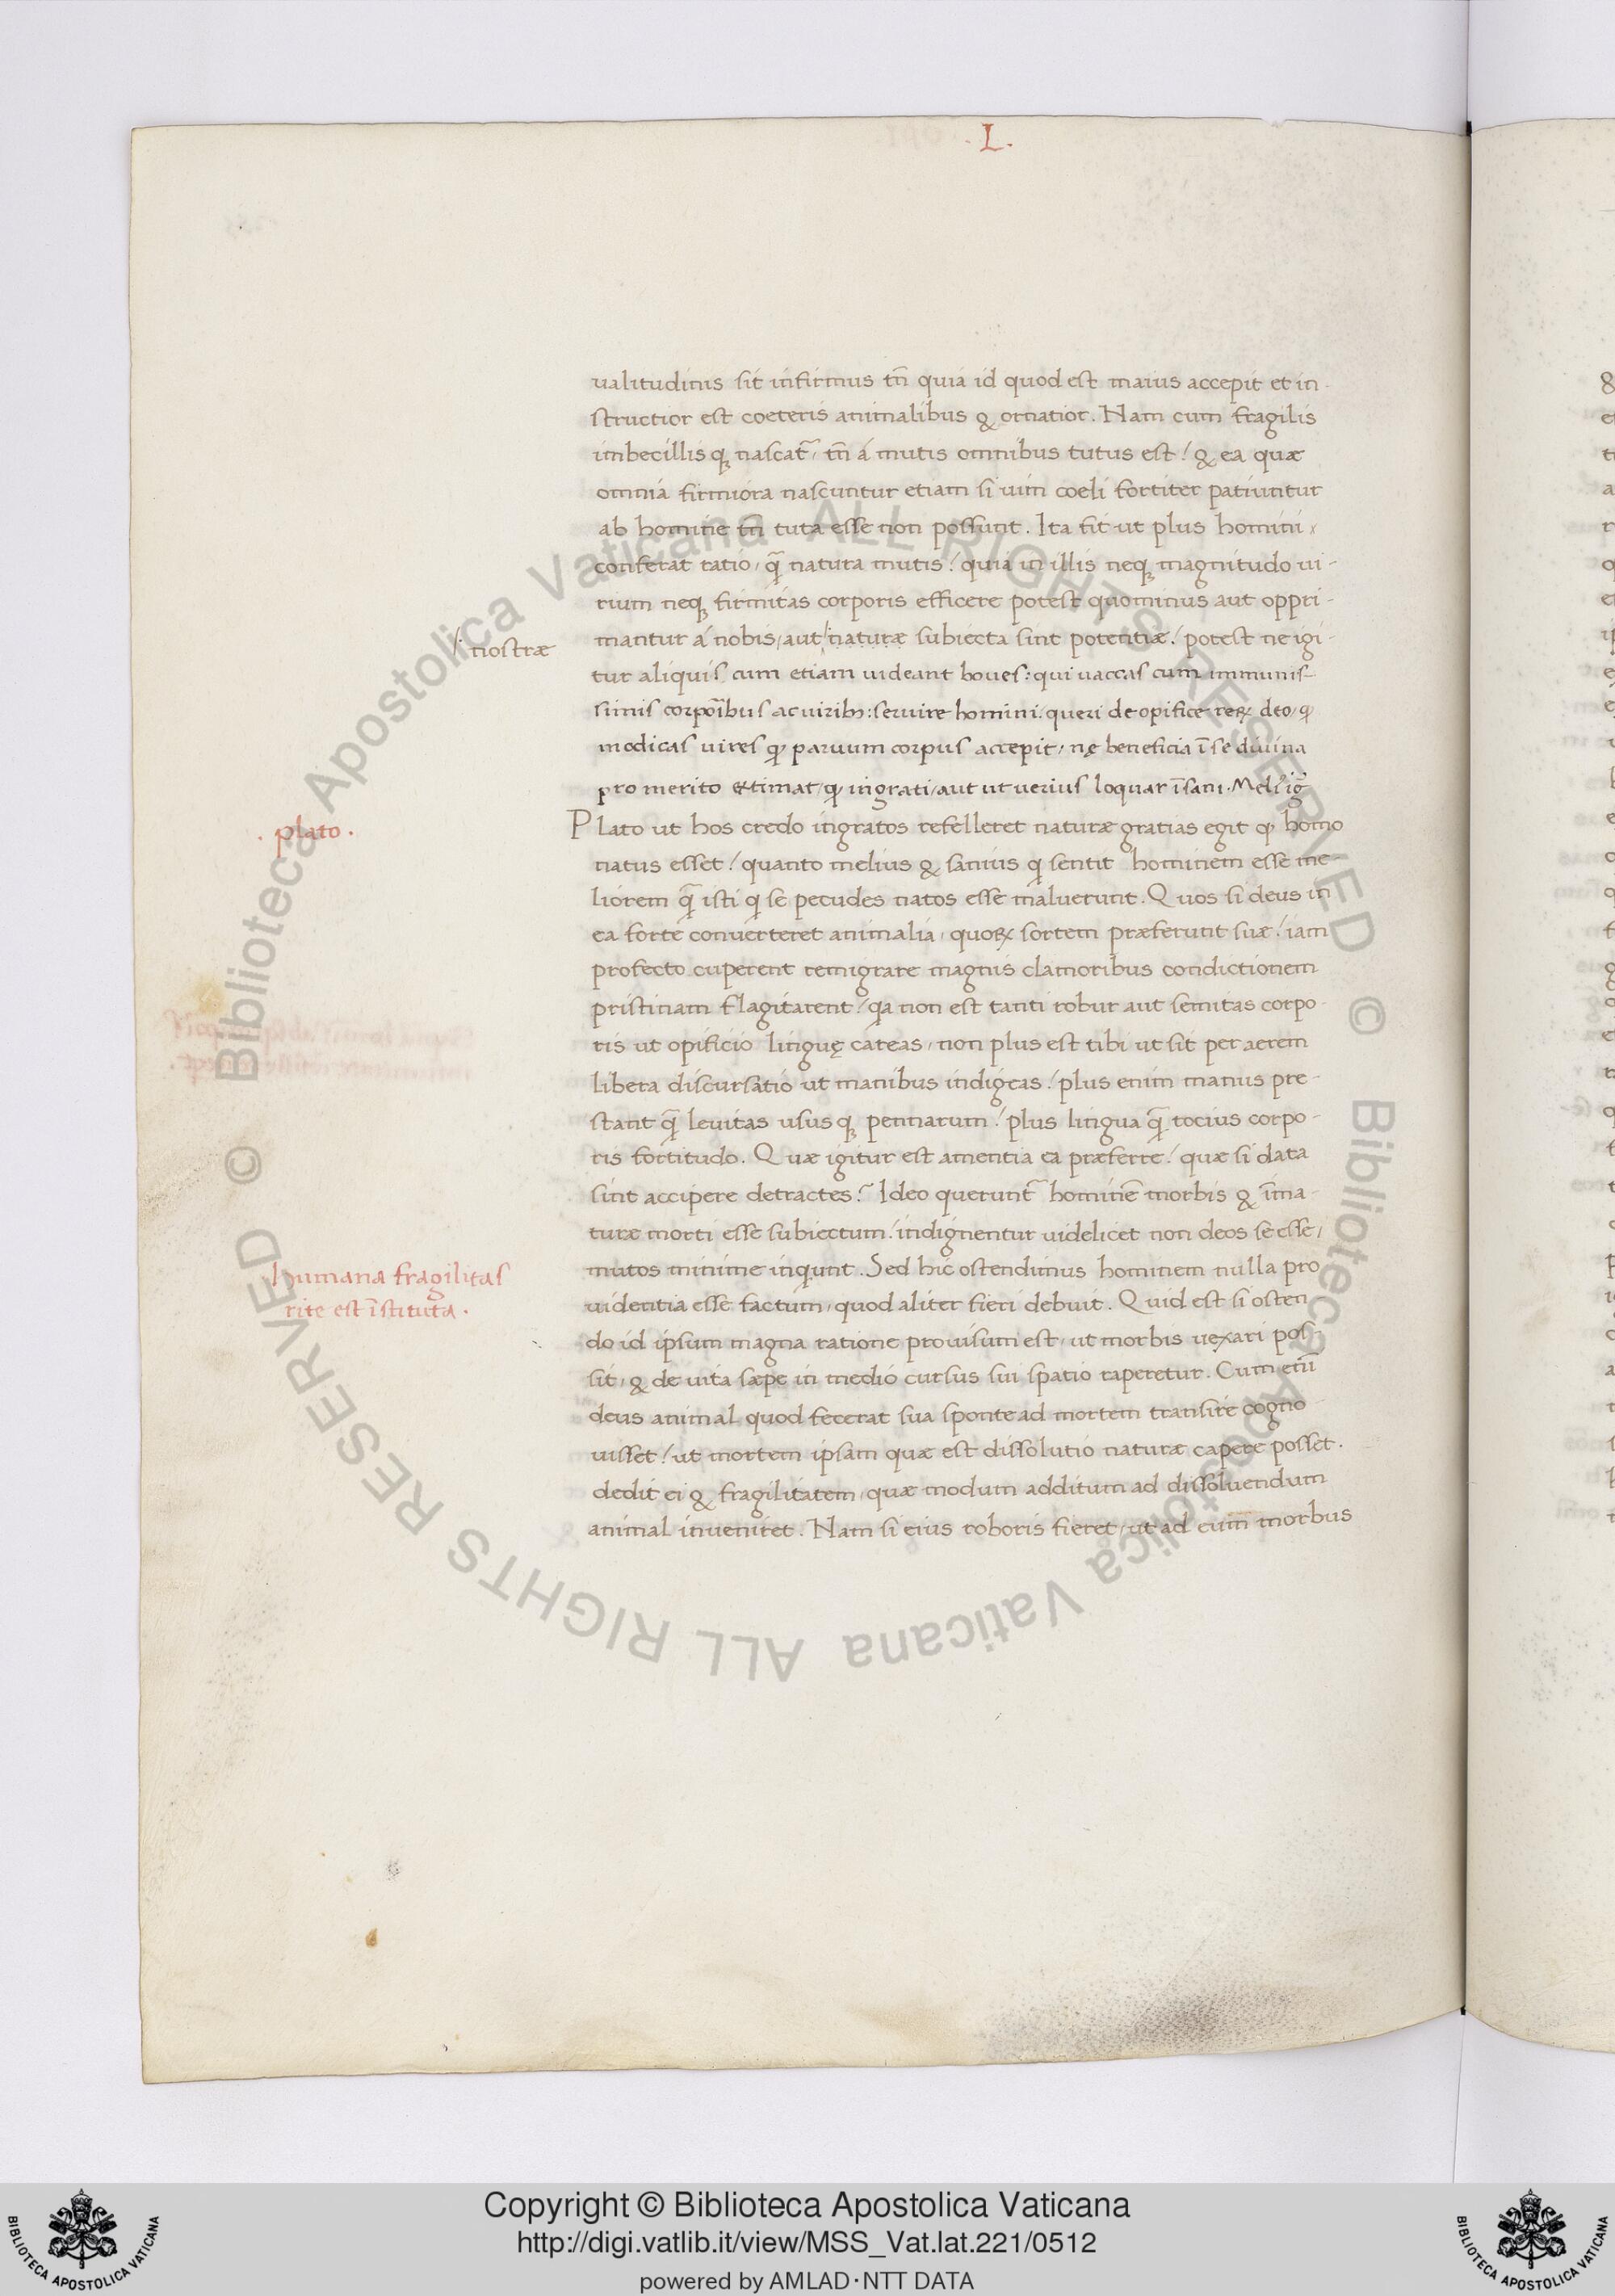 . L .
ualitudinis sit infirmus tn̄ quia id quod est maius accepit et in-
structior est coeteris animalibus & ornatior. Nam cum fragilis
imbecillisq; nascat᷒, tn̄ á mutis omnibus tutus est / & ea quæ
omnia firmiora nascuntur etiam si uim coeli fortiter patiuntur
ab homine tn̄ tuta esse non possunt. Ita fit ut plus homini
conferat ratio, q̄ natura mutis / quia in illis neq; magnitudo ui-
rium neq; firmitas corporis efficere potest quominus aut oppri-
mantur á nobis, aut / naturæ subiecta sint potentiæ / potest ne igi-
/ nostræ
tur aliquis cum etiam uideant boues: qui uaccas cum immunis-
simis corpoībus ac uirib;: seruire homini queri de opifice reꝝ deo, ꝙ
modicas uires ꝙ paruum corpus accepit, nę beneficia ī se diuina
pro merito extimat, ꝙ ingrati, aut ut uerius loquar īsani. Meliꝰ ig̅
. plato .
Plato ut hos credo ingratos refelleret naturæ gratias egit ꝙ homo
natus esset / quanto melius & sanius q̇ sentit hominem esse me-
liorem q̄ isti q̇ se pecudes natos esse maluerunt. Quos si deus in
ea forte conuerteret animalia, quoꝝ sortem præferunt suæ / iam
profecto cuperent remigrare magnis clamoribus condictionem
pristinam flagitarent / qa non est tanti robur aut semitas corpo-
ris ut opificio linguę careas, non plus est tibi ut sit per aerem
libera discursatio ut manibus indigeas / plus enim manus pre-
stant q̄ leuitas ususq; pennarum / plus lingua q̄ tocius corpo-
ris fortitudo. Quæ igitur est amentia ea præferre / quæ si data
sint accipere detractes? Ideo querunt᷒ hominē morbis & īma-
turæ morti esse subiectum / indignentur uidelicet non deos se esse /
humana fragilitas
rite est īstituta .
mutos minime inqunt. Sed hic ostendimus hominem nulla pro
uidentia esse factum, quod aliter fieri debuit. Quid est si osten
do id ipsum magna ratione prouisum est, ut morbis uexari pos-
sit, & de uita sæpe in medio cursus sui spatio raperetur. Cum eni̅
deus animal quod fecerat sua sponte ad mortem transire cogno
uisset / ut mortem ipsam quæ est dissolutio naturæ capere posset.
dedit ei & fragilitatem, quæ modum additum ad dissoluendum
animal inueniret. Nam si eius roboris fieret, ut ad eum morbus
© Biblioteca Apostolica Vaticana ALL RIGHTS RESERVED
© Biblioteca Apostolica Vaticana ALL RIGHTS RESERVED
Copyright © Biblioteca Apostolica Vaticana
http://digi.vatlib.it/view/MSS_Vat.lat.221/0512
powered by AMLAD·NTT DATA
BIBLIOTECA APOSTOLICA VATICANA
BIBLIOTECA APOSTOLICA VATICANA